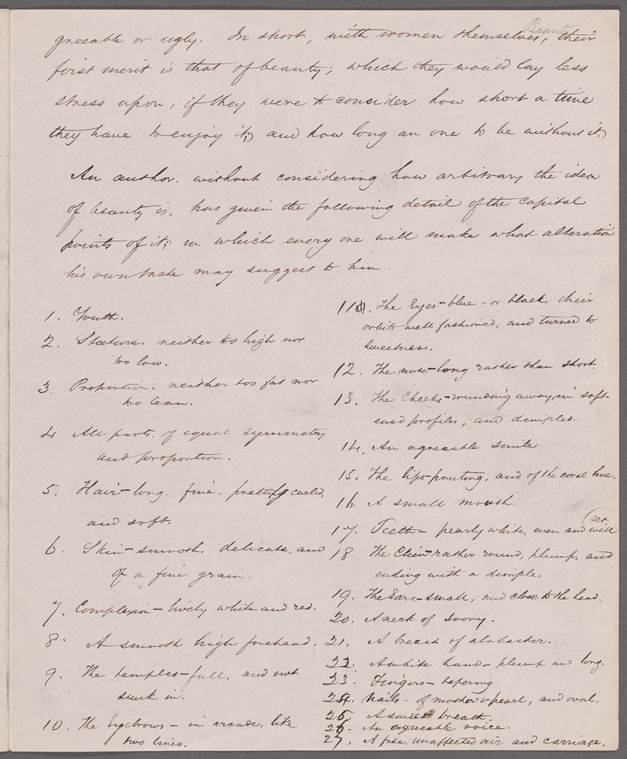 Beauty
greeable or ugly. In short, with women themselves, their
first merit is that of beauty; which they would lay less
stress upon, if they were to consider how short a time
they have to enjoy it, and how long an one to be without it.
An author, without considering how arbitrary the idea
of beauty is, has given the following detail of the capital
points of it; in which every one will make what alteration
his own taste may suggest to him.
1. Youth.
2. Stature. neither too high nor
too low.
3. Proportion. neither too fat nor
too lean.
4. All parts. of equal symmetry
and proportion.
5. Hair – long. fine, prettily curled
and soft.
6. Skin – smooth, delicate, and
of a fine grain.
7. Complexion – lively white and red.
8. A smooth high forehead.
9. The temples – full, and not
sunk in.
10. The eyebrows – in arcade, like
two lines.
11. The Eyes – blue – or black, their
orbits well fashioned, and turned to
sweetness.
12. The nose – long rather than short.
13. The Cheeks – rounding away, in soft-
ened profiles, and dimpled.
14. An agreeable smile
15. The lips – pouting, and of the coral hue.
16. A small mouth.
17. Teeth – pearly white, even and well set.
18. The Chin – rather round, plump, and
ending with a dimple.
19. The Ears – small, and close to the head.
20. A neck of ivory.
21. A breast of alabaster.
22. A white hand – plump and long.
23. Fingers – tapering
24. Nails – of mother o'pearl, and oval.
25. A sweet breath.
26. An agreeable voice.
27. A free, unaffected air and carriage.